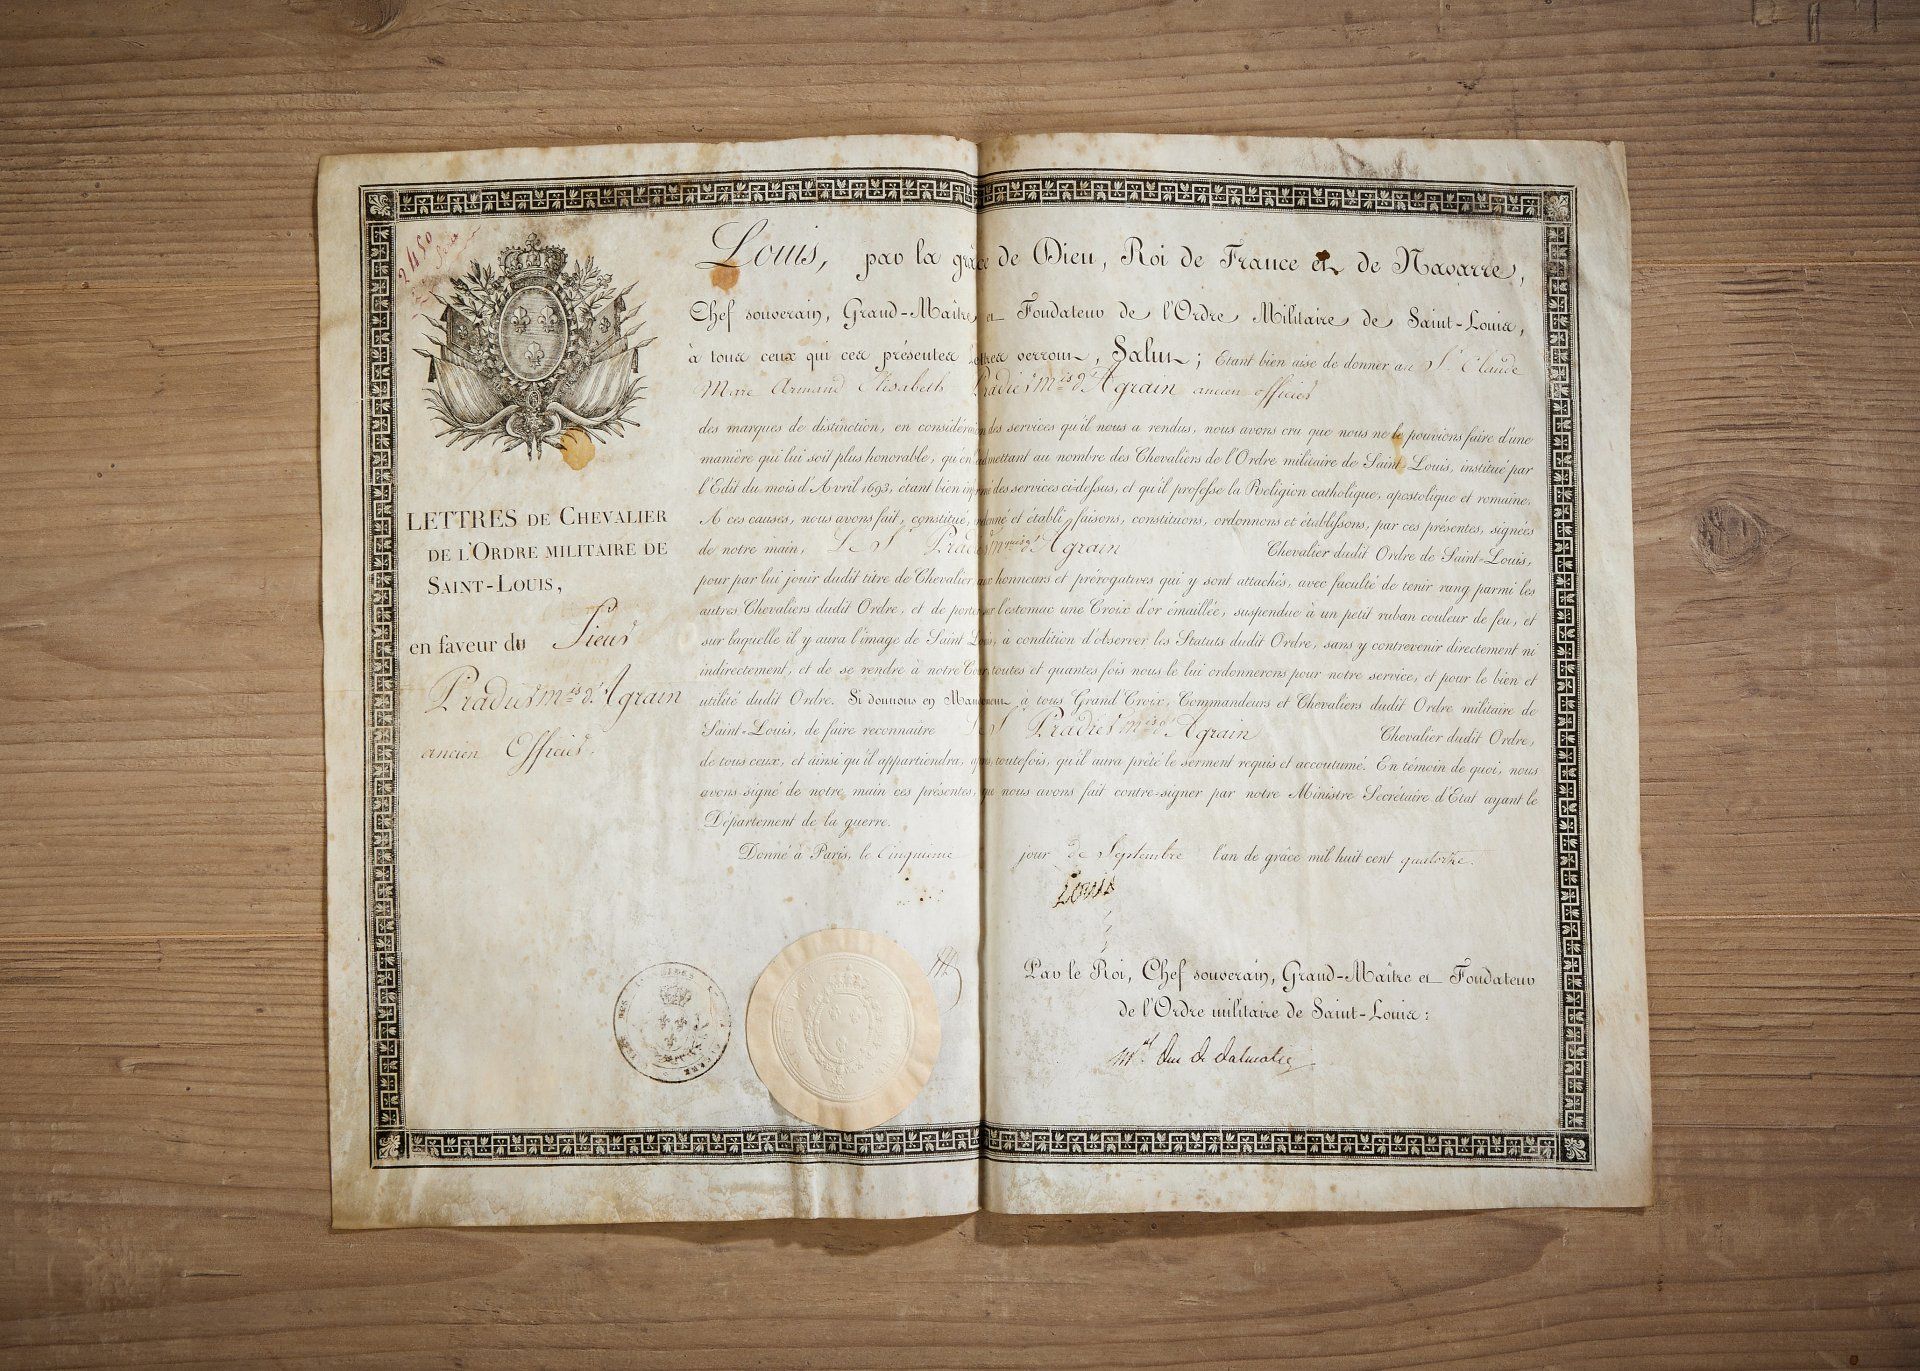 2450
LETTRES DE CHEVALIER
DE L'ORDRE MILITAIRE DE
SAINT-LOUIS,
en faveur du Sieur
Pradier Mis d'Agrain
ancien Officier.
Louis, par la grâce de Dieu, Roi de France et de Navarre,
Chef souverain, Grand-Maître et Fondateur de l'Ordre Militaire de Saint-Louis,
à tous ceux qui ces présentes lettres verront, Salut; Etant bien aise de donner au Sr. Claude
Marc Armand Elisabeth Pradier Mis d'Agrain ancien officier
des marques de distinction, en considération des services qu'il nous a rendus, nous avons cru que nous ne le pouvions faire d'une
manière qui lui soit plus honorable, qu'en l'admettant au nombre des Chevaliers de l'Ordre militaire de Saint-Louis, institué par
l'Edit du mois d'Avril 1693, étant bien informé des services ci-dessus, et qu'il professe la Religion catholique, apostolique et romaine.
A ces causes, nous avons fait, constitué, ordonné et établi, faisons, constituons, ordonnons et établissons, par ces présentes, signées
de notre main, Le Sr Pradier Mquis d'Agrain Chevalier dudit Ordre de Saint-Louis,
pour par lui jouir dudit titre de Chevalier aux honneurs et prérogatives qui y sont attachés, avec faculté de tenir rang parmi les
autres Chevaliers dudit Ordre, et de porter sur l'estomac une Croix d'or émaillée, suspendue à un petit ruban couleur de feu, et
sur laquelle il y aura l'image de Saint Louis, à condition d'observer les Statuts dudit Ordre, sans y contrevenir directement ni
indirectement, et de se rendre à notre Cour, toutes et quantes fois nous le lui ordonnerons pour notre service, et pour le bien et
utilité dudit Ordre. Si donnons en Mandement, à tous Grand'Croix, Commandeurs et Chevaliers dudit Ordre militaire de
Saint-Louis, de faire reconnaître Le Sr Pradier Mis d'Agrain Chevalier dudit Ordre,
de tous ceux, et ainsi qu'il appartiendra, après, toutefois, qu'il aura prêté le serment requis et accoutumé. En témoin de quoi, nous
avons signé de notre main ces présentes, que nous avons fait contre-signer par notre Ministre Secrétaire d'Etat ayant le
Département de la guerre.
Donné à Paris, le Cinquième jour de Septembre l'an de grâce mil huit cent quatorze.
Louis
Par le Roi, Chef souverain, Grand-Maître et Fondateur
de l'Ordre militaire de Saint-Louis:
Mal Duc de Dalmatie